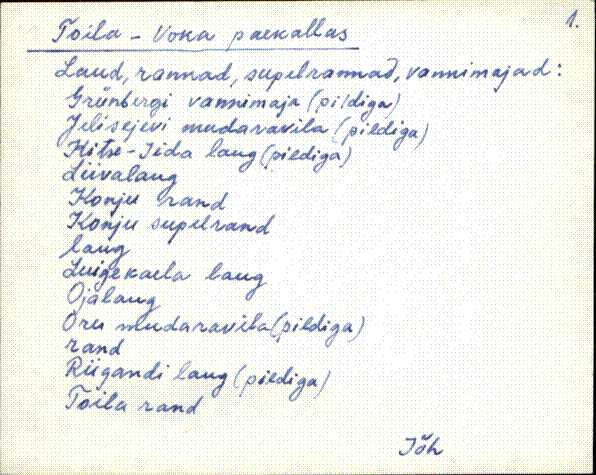 1.
Toila - Voka paekallas
Laud, rannad, supelrannad, vannimajad:
Grünbergi vannimaja (pildiga)
Jelisejevi mudaravila (pildiga)
Kitse-Iida laug (pildiga)
Liivalaug
Konju rand
Konju supelrand
laug
Luigekaela laug
Ojalaug
Oru mudaravila (pildiga)
rand
Riigandi laug (pildiga)
Toila rand
Jõh